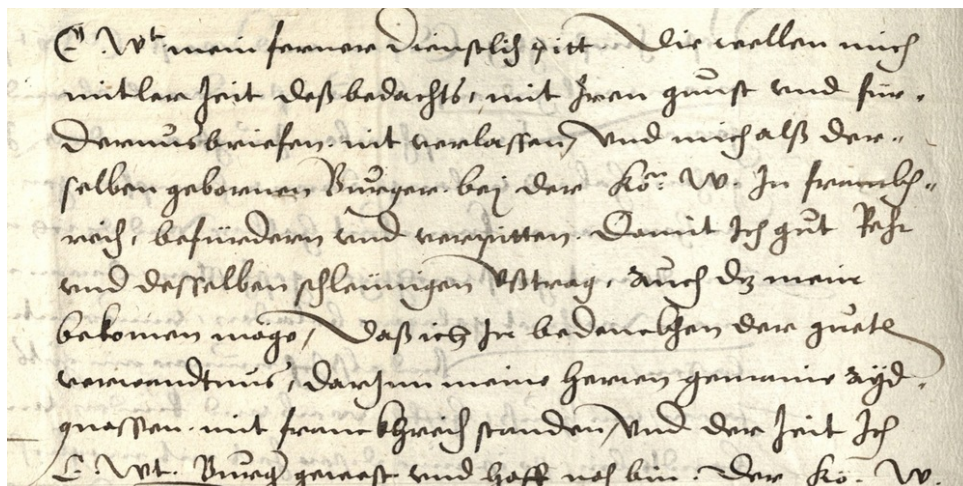 E. Wt. mein ferner dienstlich pitt Die wellen mich
mitler Zeit deß bedachts, mit Iren gunst vnd für-
dernusbriefen nit verlassen, Vnd mich alß der-
selben gebornen Burger bej der Kön. W. In franckh-
reich, befürdern vnd verpitten. Damit Ich gut Recht
vnd desselben schleünigen vßtrag, auch dz mein
bekomen möge, Daß ich In bedenckhen der guete
verwendtnus, darJnn meine herren gemaine Ayd-
gnossen mit franckhreich standen, Vnd der Zeit Ich
E. Wt. Burger gewest vnd hoff noch bin. Der Kö. W.